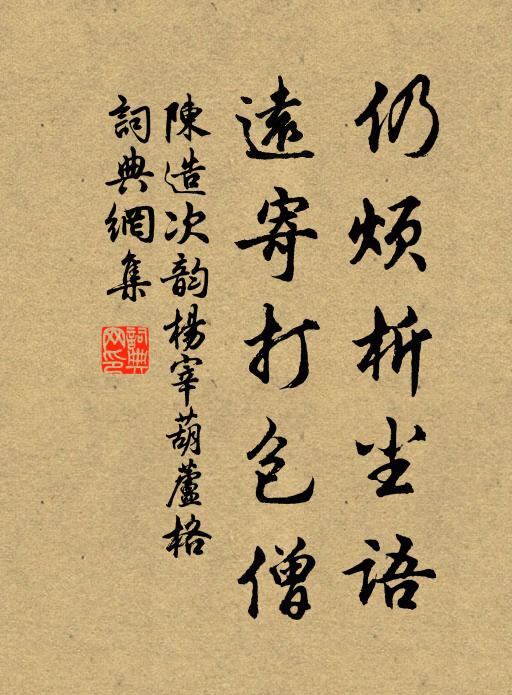 仍烦析尘语
遠寄打包僧
陳造次韵楊宰葫蘆格
詞典網集
詞典
网印